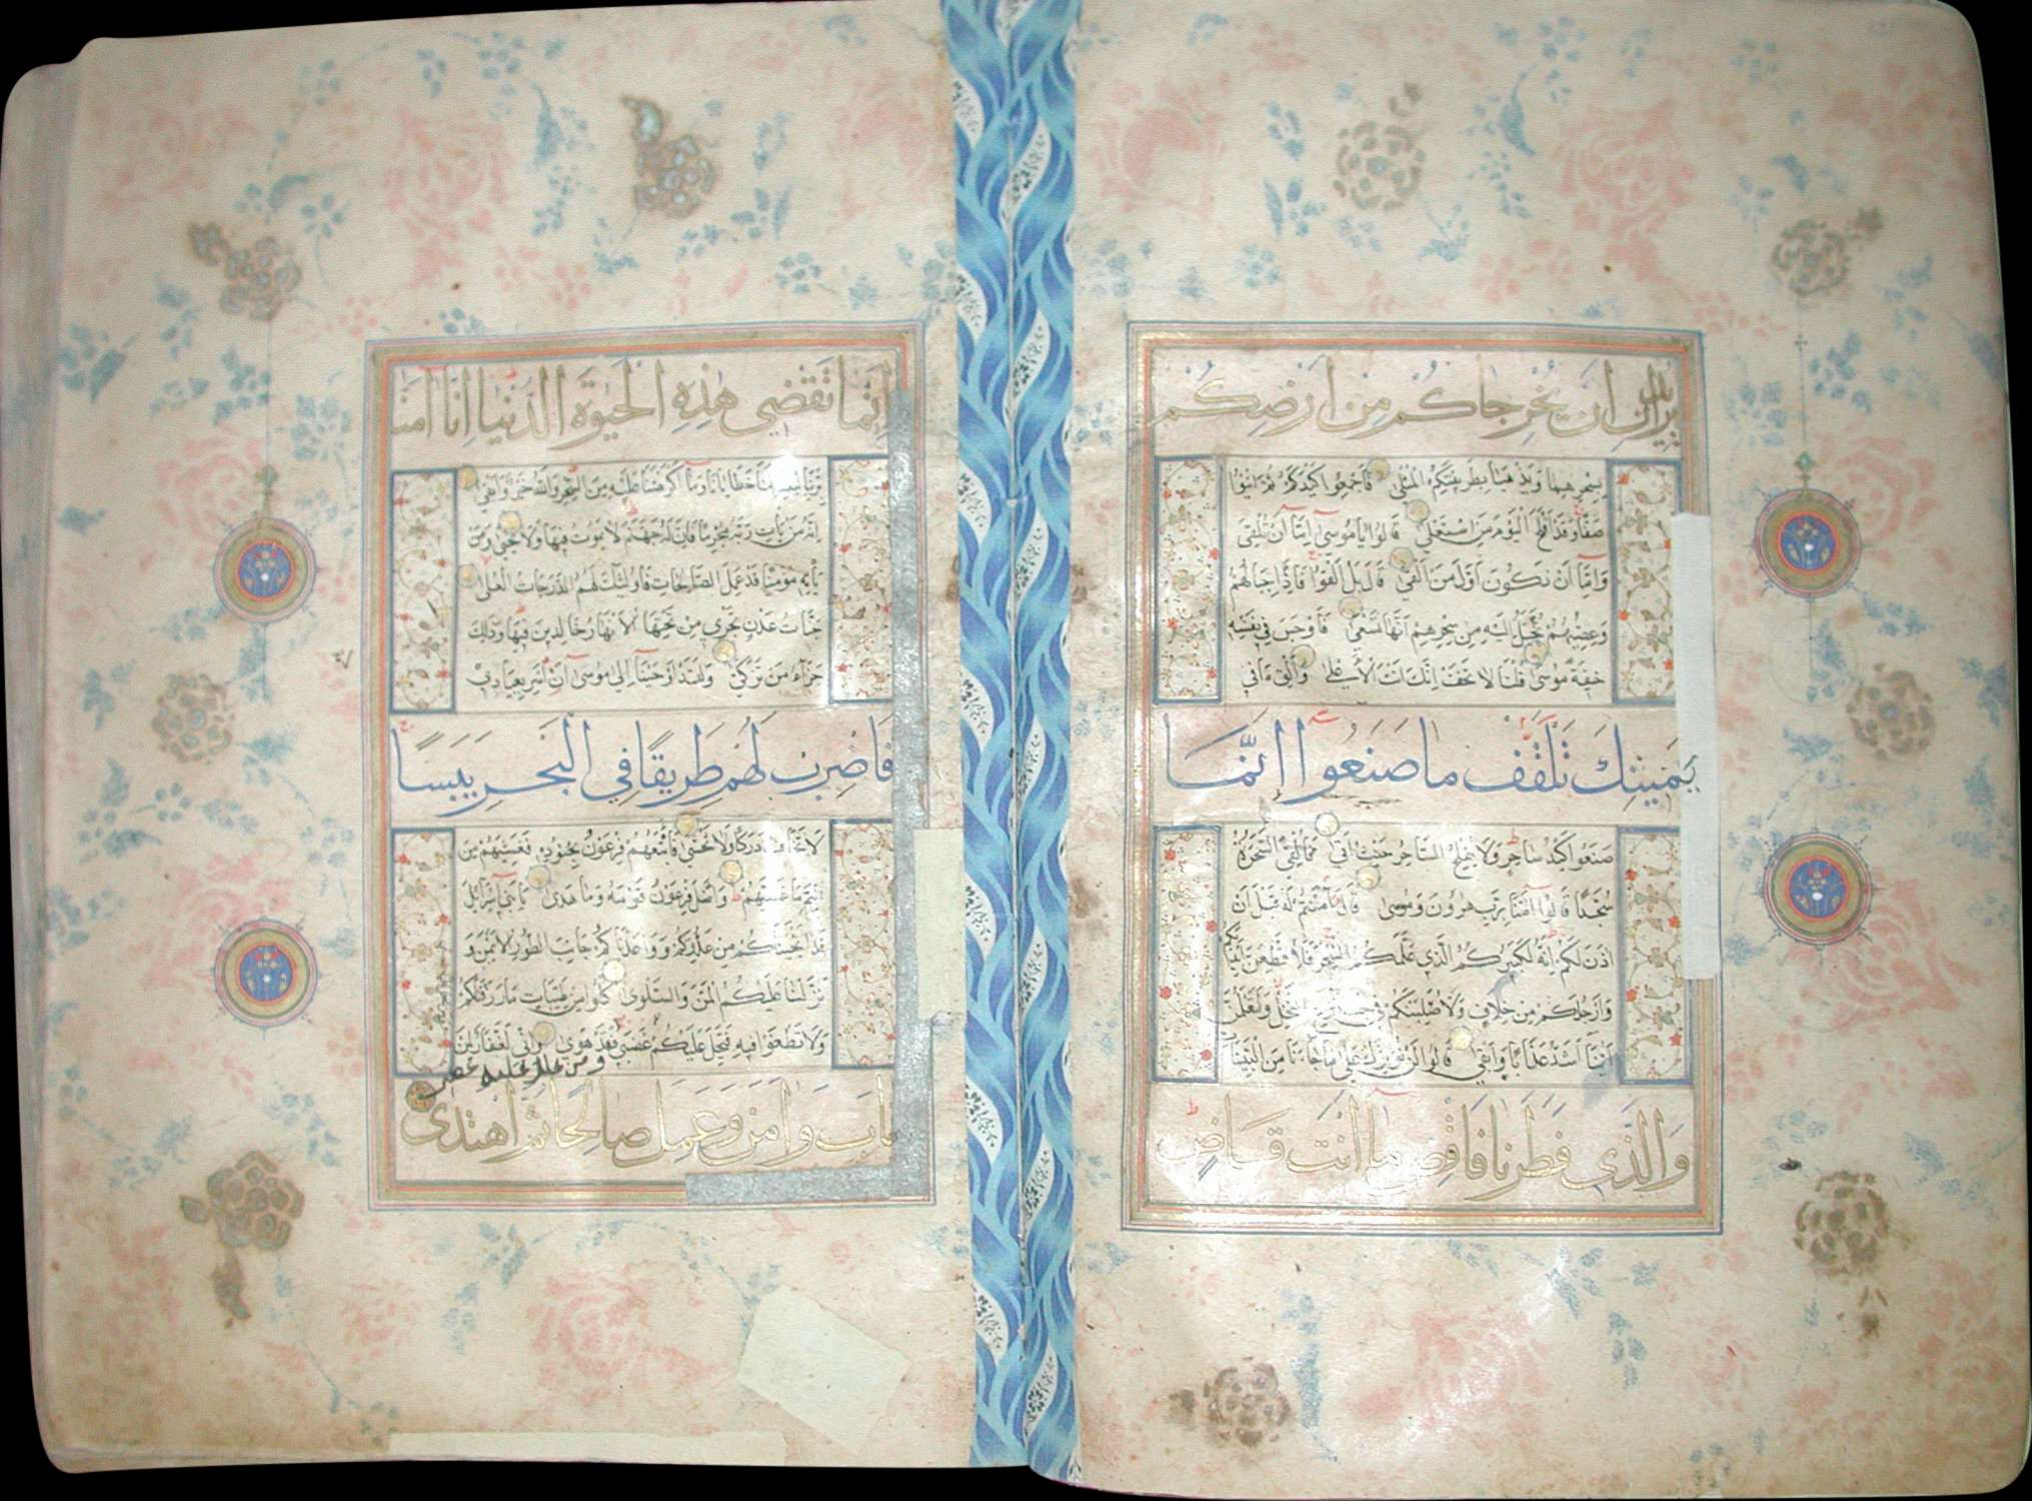 يريدان ان يخرجاكم من ارضكم
بسحرهما ويذهبا بطريقتكم المثلى فاجمعوا كيدكم ثم ائتوا
صفا وقد افلح اليوم من استعلى قالوا يا موسى اما ان تلقى
واما ان نكون اول من القى قال بل القوا فاذا حبالهم
وعصيهم يخيل اليه من سحرهم انها تسعى فاوجس في نفسه
خيفة موسى قلنا لا تخف انك انت الاعلى والق ما في
يمينك تلقف ما صنعوا انما
صنعوا كيد ساحر ولا يفلح الساحر حيث اتى فالقي السحرة
سجدا قالوا آمنا برب هرون وموسى قال آمنتم له قبل ان
اذن لكم انه لكبيركم الذي علمكم السحر فلاقطعن ايديكم
وارجلكم من خلاف ولاصلبنكم في جذوع النخل ولتعلمن
اينا اشد عذابا وابقى قالوا لن نؤثرك على ما جاءنا من البينات
والذي فطرنا فاقض ما انت قاض
انما تقضي هذه الحيوة الدنيا انا آمنا
بربنا ليغفر لنا خطايانا وما اكرهتنا عليه من السحر والله خير وابقى
انه من يات ربه مجرما فان له جهنم لا يموت فيها ولا يحيى ومن
ياته مؤمنا قد عمل الصالحات فاولئك لهم الدرجات العلى
جنات عدن تجري من تحتها الانهار خالدين فيها وذلك
جزاء من تزكى ولقد اوحينا الى موسى ان اسر بعبادي
فاضرب لهم طريقا في البحر يبسا
لا تخاف دركا ولا تخشى فاتبعهم فرعون بجنوده فغشيهم من
اليم ما غشيهم واضل فرعون قومه وما هدى يا بني اسرائيل
قد انجيناكم من عدوكم وواعدناكم جانب الطور الايمن و
نزلنا عليكم المن والسلوى كلوا من طيبات ما رزقناكم
ولا تطغوا فيه فيحل عليكم غضبي فقد هوى واني لغفار لمن
ومن يحلل عليه غضبي
تاب وامن وعمل صالحا ثم اهتدى